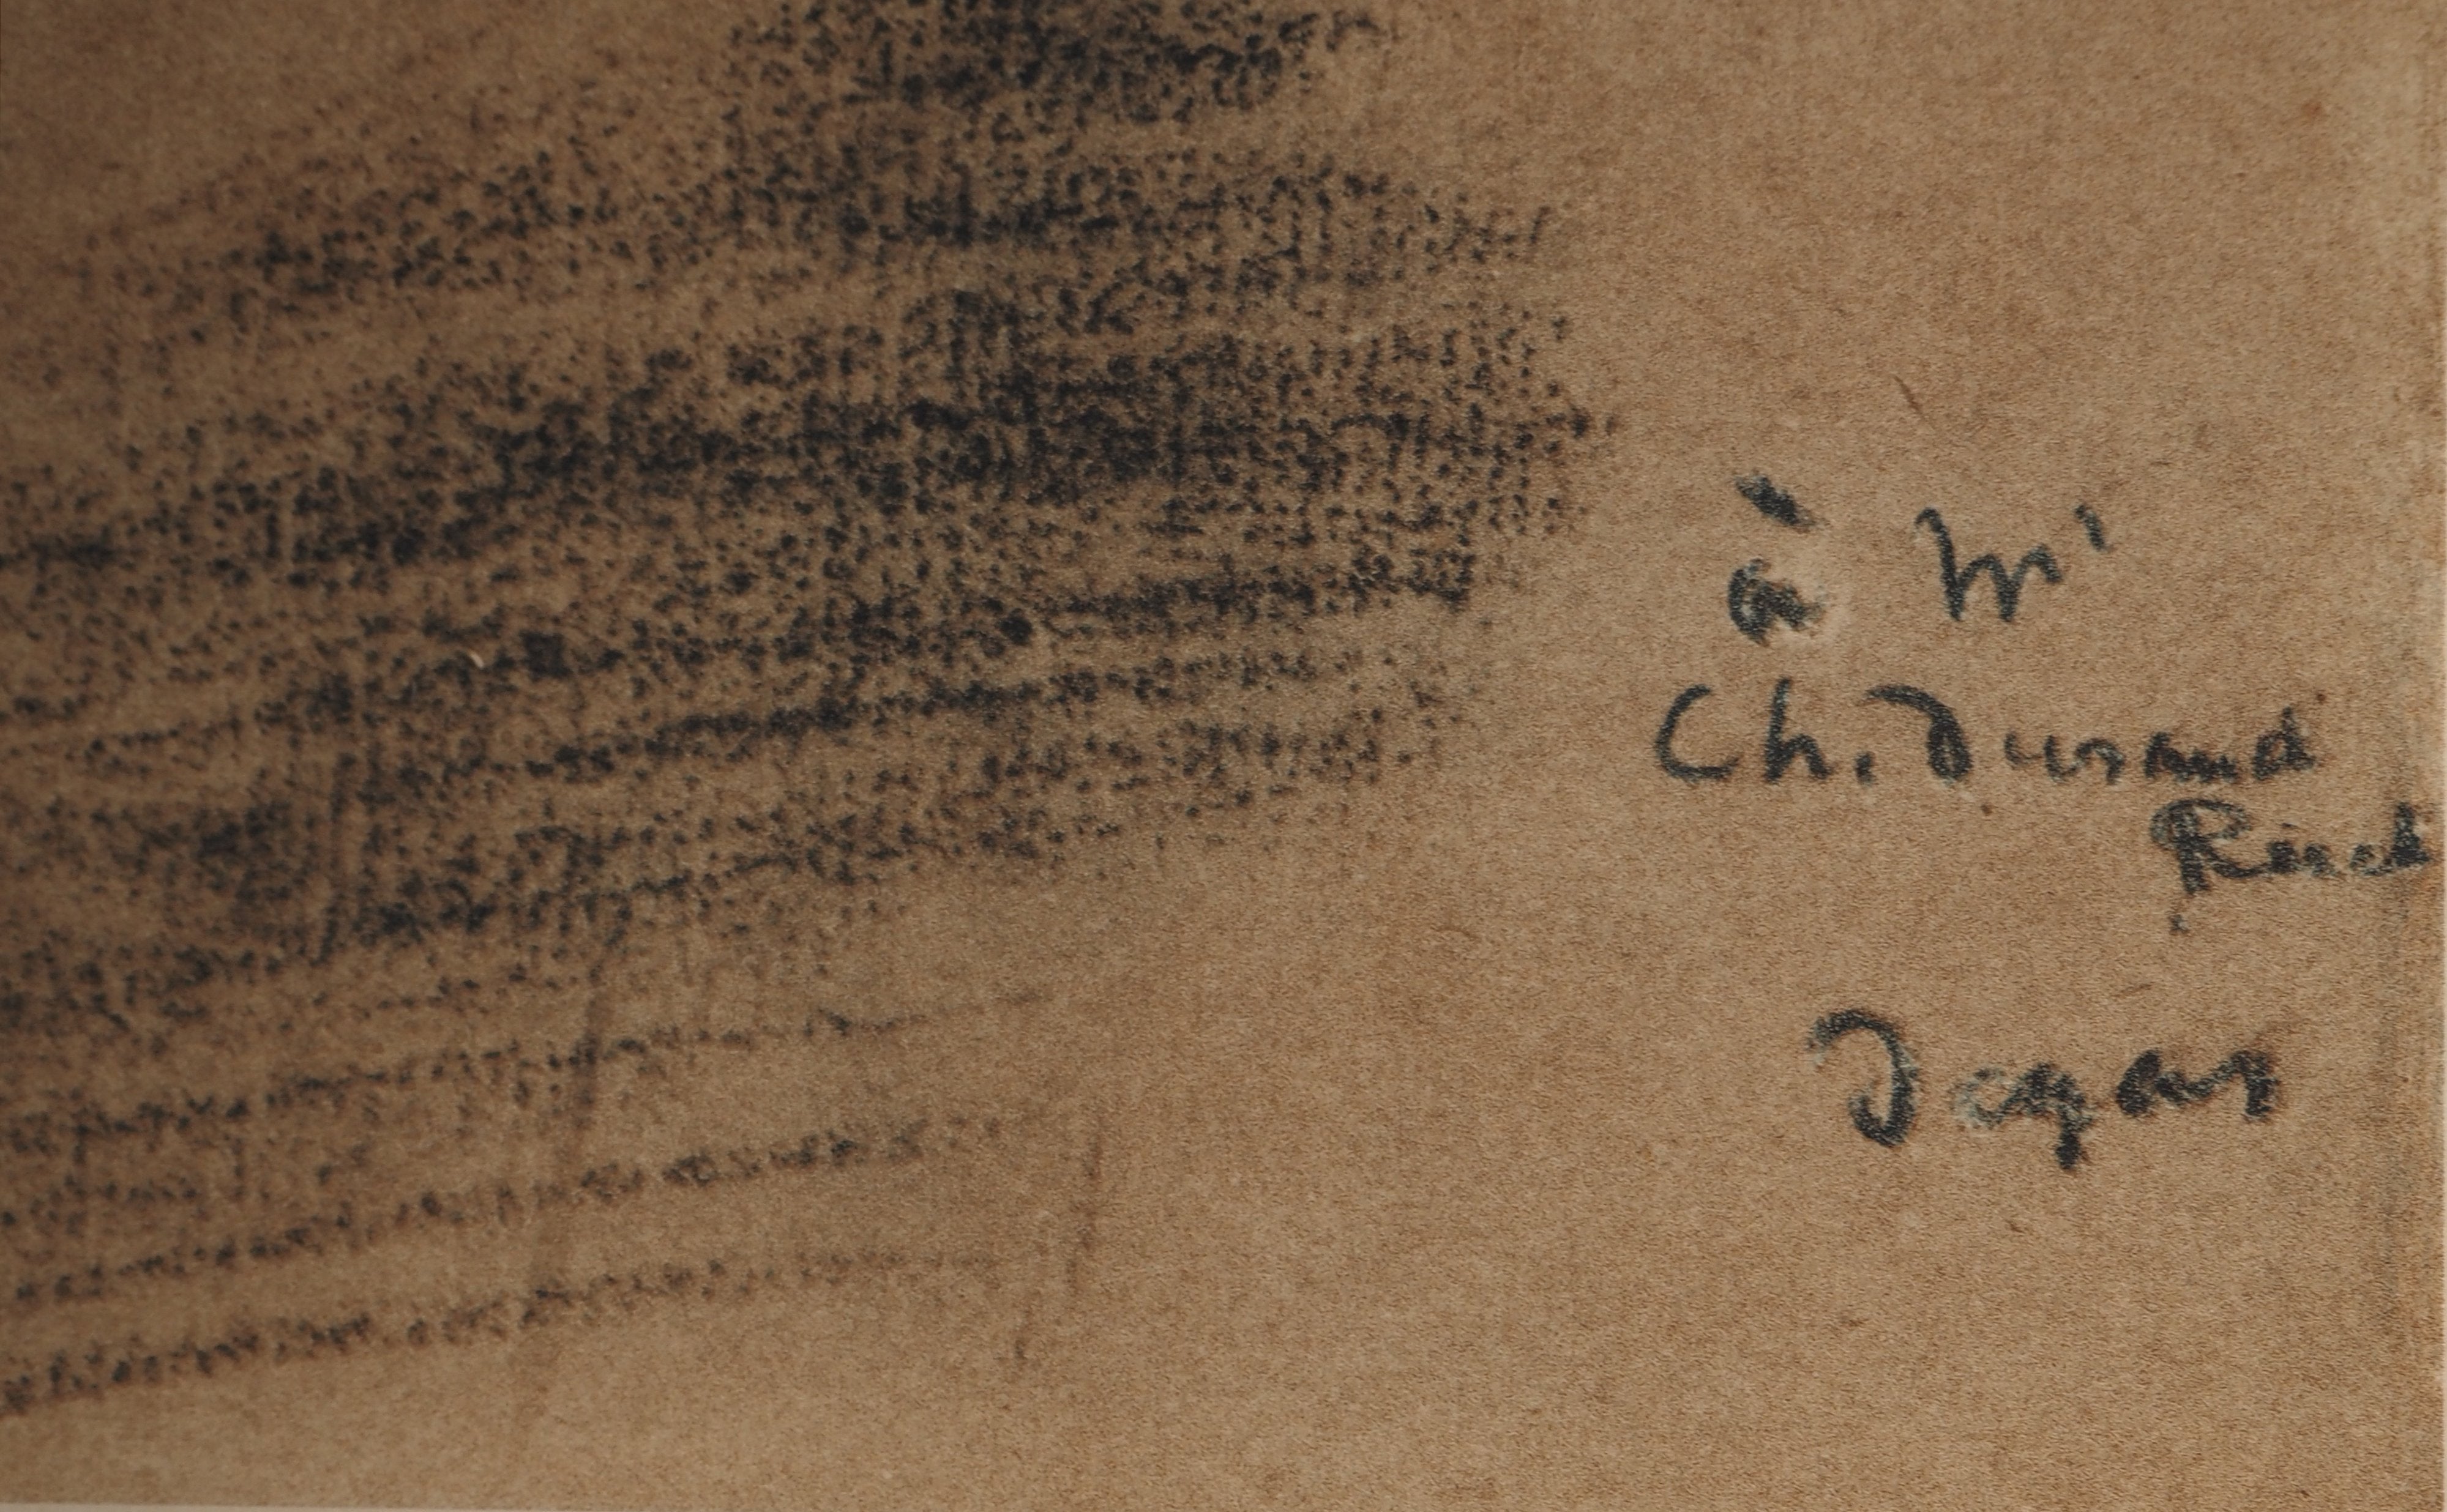 à Mr
Ch. Durand
Ruel
Degas